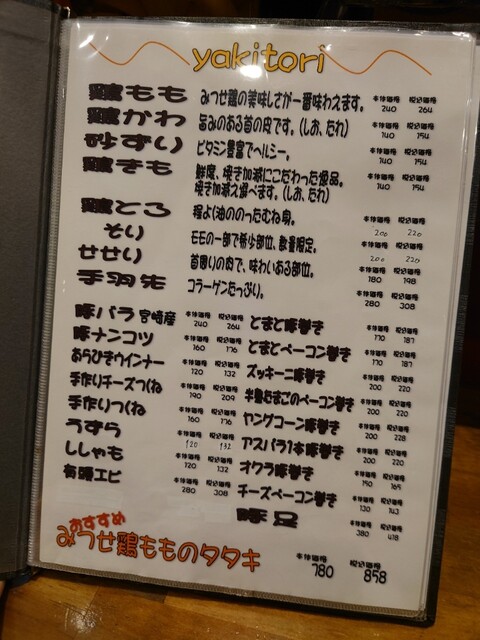 yakitori
鶏もも みつせ鶏の美味しさが一番味わえます。 本体価格 240 税込価格 264
鶏かわ 旨みのある首の皮です。(しお、たれ) 本体価格 140 税込価格 154
砂ずり ビタミン豊富でヘルシー。 本体価格 140 税込価格 154
鶏きも 鮮度、焼き加減にこだわった逸品。 本体価格 140 税込価格 154
焼き加減え選べます。(しお、たれ)
鶏とろ 程よく油ののったむね身。 本体価格 200 税込価格 220
そり ももの一部で希少部位、数量限定。 本体価格 200 税込価格 220
せせり 首周りの肉で、味わいある部位。 本体価格 180 税込価格 198
手羽先 コラーゲンたっぷり。 本体価格 280 税込価格 308
豚バラ 宮崎産 本体価格 240 税込価格 264
豚ナンコツ 本体価格 160 税込価格 176
あらびきウインナー 本体価格 120 税込価格 132
手作りチーズつくね 本体価格 190 税込価格 209
手作りつくね 本体価格 160 税込価格 176
うずら 本体価格 120 税込価格 132
ししゃも 本体価格 120 税込価格 132
有頭エビ 本体価格 280 税込価格 308
とまと豚巻き 本体価格 170 税込価格 187
とまとベーコン巻き 本体価格 170 税込価格 187
ズッキーニ豚巻き 本体価格 200 税込価格 220
半熟たまごのベーコン巻き 本体価格 200 税込価格 220
ヤングコーン豚巻き 本体価格 200 税込価格 228
アスパラ1本豚巻き 本体価格 200 税込価格 220
オクラ豚巻き 本体価格 150 税込価格 165
チーズベーコン巻き 本体価格 130 税込価格 143
豚足 本体価格 380 税込価格 418
おすすめ
みつせ鶏もものタタキ 本体価格 780 税込価格 858